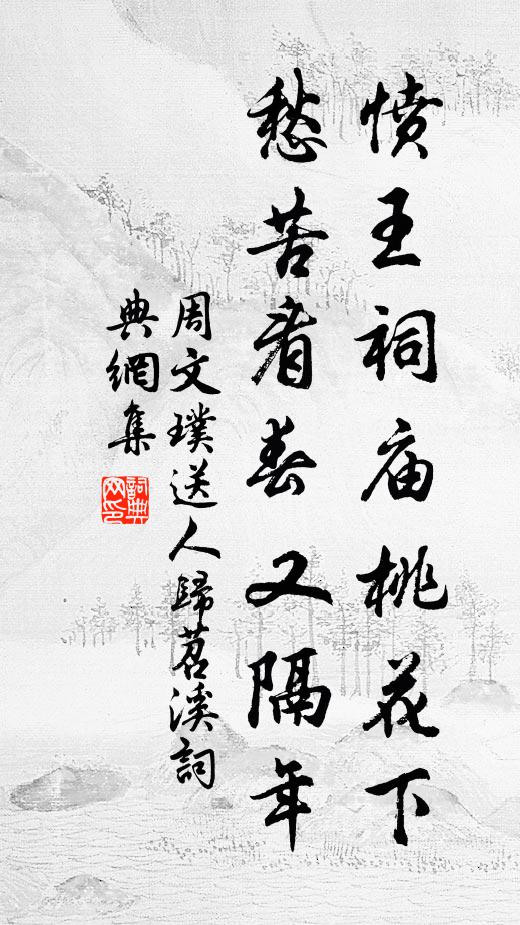 憤王祠庙桃花下
愁苦看春又隔年
周文璞送人歸苕溪詞
典網集
詞典
网印